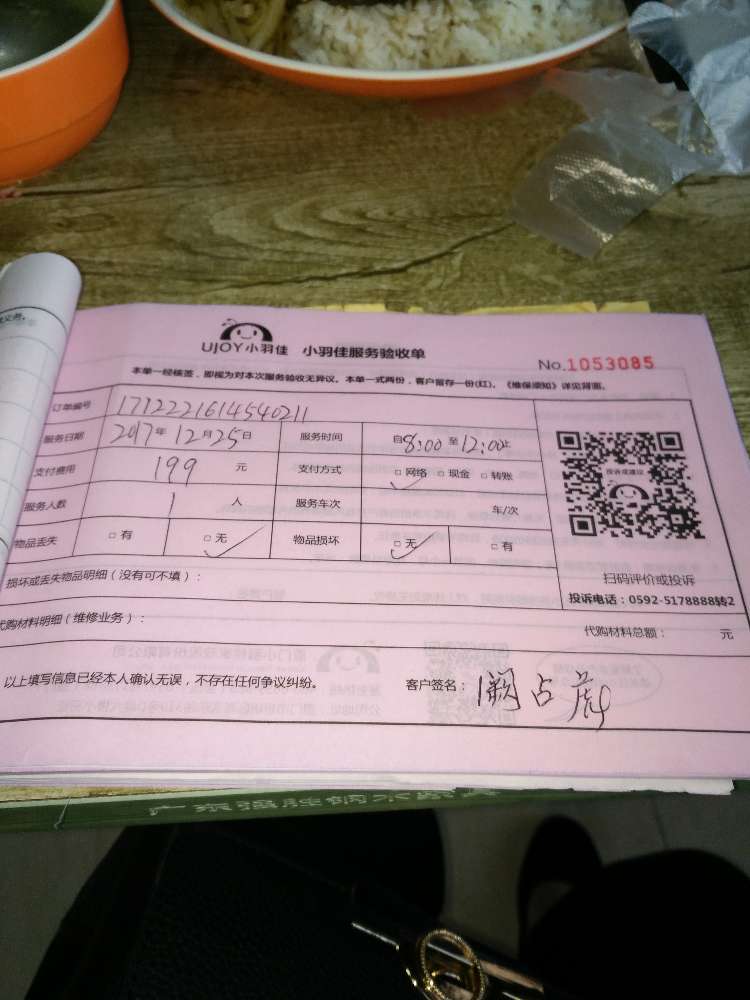 UJOY小羽佳 小羽佳服务验收单
No.1053085
本单一经核签，即视为对本次服务验收无异议。本单一式两份，客户留存一份(红)。《维保须知》详见背面。
订单编号 1712221614540211
服务日期 2017年12月25日 服务时间 自8:00至12:00止
支付费用 199 元 支付方式 □网络 □现金 □转账
服务人数 1 人 服务车次 车/次
物品丢失 □有 □无 物品损坏 □无 □有
投诉或建议
扫码评价或投诉
投诉电话：0592-5178888转2
损坏或丢失物品明细（没有可不填）：
代购材料明细（维修业务）：
代购材料总额： 元
以上填写信息已经本人确认无误，不存在任何争议纠纷。 客户签名：阙占彪